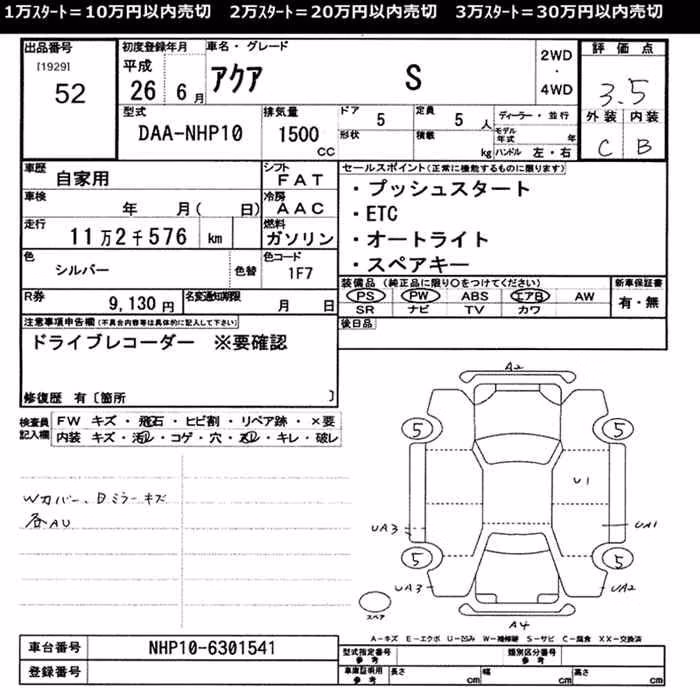 1万ｽﾀｰﾄ＝10万円以内売切　2万ｽﾀｰﾄ＝20万円以内売切　3万ｽﾀｰﾄ＝30万円以内売切
出品番号
[1929]
52
初度登録年月
平成
26 6月
車名・グレード
アクア S
2WD
・
4WD
評価点
3.5
外装 内装
C B
型式
DAA-NHP10
排気量
1500
CC
ドア 5
形状
定員 5 人
積載 kg
ディーラー・並行
モデル年式 年
ハンドル 左・右
車歴
自家用
シフト
FAT
車検
年 月( 日)
冷房
AAC
走行
11万2千576 km
燃料
ガソリン
色
シルバー
色替
色コード
1F7
R券
9,130円
名変通知期限
月 日
セールスポイント(正常に機能するものに限ります)
・プッシュスタート
・ETC
・オートライト
・スペアキー
装備品(純正品に限り○をつけてください)
PS PW ABS エアB AW
SR ナビ TV カワ
新車保証書
有・無
後日品
注意事項申告欄(不具合内容等は具体的に記入して下さい)
ドライブレコーダー ※要確認
修復歴 有〔箇所 〕
検査員
記入欄
FW キズ・飛石・ヒビ割・リペア跡・×要
内装 キズ・汚レ・コゲ・穴・スレ・キレ・破レ
Wカバー、Dミラーキズ
各AU
A2
5 5
U1
UA3 UA1
5 5
UA3 UA2
スペア
A4
A－キズ E－エクボ U－凹み W－補修跡 S－サビ C－腐食 XX－交換済
車台番号 NHP10-6301541
登録番号
型式指定番号
参考
類別区分番号
参考
車庫証明用
参考
長さ cm 幅 cm 高さ cm